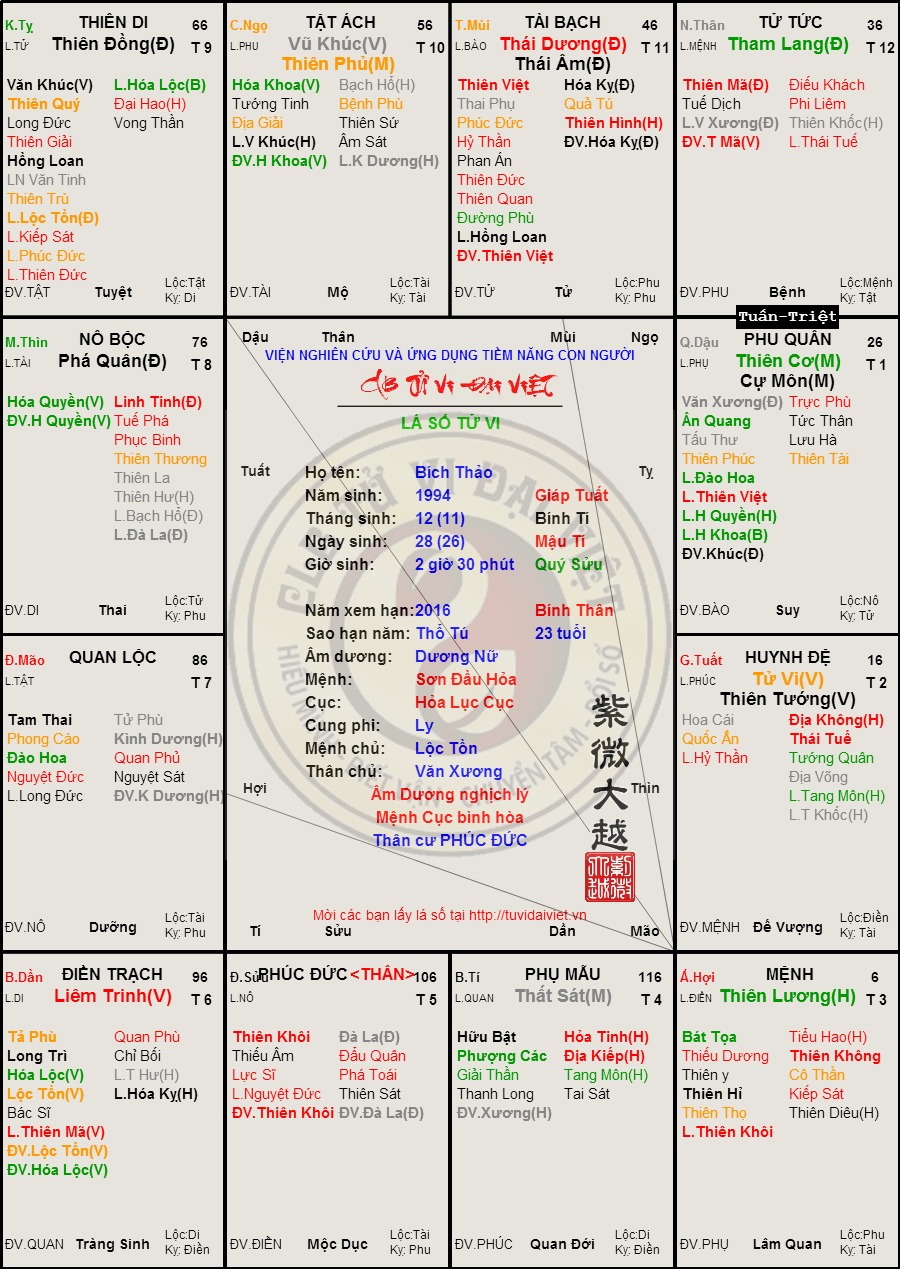 K.Tỵ THIÊN DI 66
L.TỬ Thiên Đồng(Đ) T 9
Văn Khúc(V) L.Hóa Lộc(B)
Thiên Quý Đại Hao(H)
Long Đức Vong Thần
Thiên Giải
Hồng Loan
LN Văn Tinh
Thiên Trù
L.Lộc Tồn(Đ)
L.Kiếp Sát
L.Phúc Đức
L.Thiên Đức
ĐV.TẬT Tuyệt Lộc:Tật
Kỵ: Di
C.Ngọ TẬT ÁCH 56
L.PHU Vũ Khúc(V) T 10
Thiên Phủ(M)
Hóa Khoa(V) Bạch Hổ(H)
Tướng Tinh Bệnh Phù
Địa Giải Thiên Sứ
L.V Khúc(H) Âm Sát
ĐV.H Khoa(V) L.K Dương(H)
ĐV.TÀI Mộ Lộc:Tài
Kỵ: Tài
T.Mùi TÀI BẠCH 46
L.BÀO Thái Dương(Đ) T 11
Thái Âm(Đ)
Thiên Việt Hóa Kỵ(Đ)
Thai Phụ Quả Tú
Phúc Đức Thiên Hình(H)
Hỷ Thần ĐV.Hóa Kỵ(Đ)
Phan Án
Thiên Đức
Thiên Quan
Đường Phù
L.Hồng Loan
ĐV.Thiên Việt
ĐV.TỬ Tử Lộc:Phu
Kỵ: Phu
N.Thân TỬ TỨC 36
L.MỆNH Tham Lang(Đ) T 12
Thiên Mã(Đ) Điếu Khách
Tuế Dịch Phi Liêm
L.V Xương(Đ) Thiên Khốc(H)
ĐV.T Mã(V) L.Thái Tuế
ĐV.PHU Bệnh Lộc:Mệnh
Kỵ: Tật
Tuấn-Triệt
M.Thìn NÔ BỘC 76
L.TÀI Phá Quân(Đ) T 8
Hóa Quyền(V) Linh Tinh(Đ)
ĐV.H Quyền(V) Tuế Phá
Phục Binh
Thiên Thương
Thiên La
Thiên Hư(H)
L.Bạch Hổ(Đ)
L.Đà La(Đ)
ĐV.DI Thai Lộc:Tử
Kỵ: Phu
Dậu Thân Mùi Ngọ
VIỆN NGHIÊN CỨU VÀ ỨNG DỤNG TIỀM NĂNG CON NGƯỜI
CLB TỬ VI ĐẠI VIỆT
LÁ SỐ TỬ VI
Tuất Tỵ
Họ tên: Bích Thảo
Năm sinh: 1994 Giáp Tuất
Tháng sinh: 12 (11) Bính Tí
Ngày sinh: 28 (26) Mậu Tí
Giờ sinh: 2 giờ 30 phút Quý Sửu
Năm xem hạn: 2016 Bính Thân
Sao hạn năm: Thổ Tú 23 tuổi
Âm dương: Dương Nữ
Mệnh: Sơn Đầu Hỏa
Cục: Hỏa Lục Cục
Cung phi: Ly
Mệnh chủ: Lộc Tồn
Thân chủ: Văn Xương
Hợi Thìn
Âm Dương nghịch lý
Mệnh Cục bình hòa
Thân cư PHÚC ĐỨC
紫微大越
Mời các bạn lấy lá số tại http://tuvidaiviet.vn
Tí Sửu Dần Mão
Q.Dậu PHU QUÂN 26
L.PHỤ Thiên Cơ(M) T 1
Cự Môn(M)
Văn Xương(Đ) Trực Phù
Ân Quang Tức Thân
Tấu Thư Lưu Hà
Thiên Phúc Thiên Tài
L.Đào Hoa
L.Thiên Việt
L.H Quyền(H)
L.H Khoa(B)
ĐV.Khúc(Đ)
ĐV.BÀO Suy Lộc:Nô
Kỵ: Tử
Đ.Mão QUAN LỘC 86
L.TẬT T 7
Tam Thai Tử Phù
Phong Cáo Kình Dương(H)
Đào Hoa Quan Phủ
Nguyệt Đức Nguyệt Sát
L.Long Đức ĐV.K Dương(H)
ĐV.NÔ Dưỡng Lộc:Tài
Kỵ: Phu
G.Tuất HUYNH ĐỆ 16
L.PHÚC Tử Vi(V) T 2
Thiên Tướng(V)
Hoa Cái Địa Không(H)
Quốc Ấn Thái Tuế
L.Hỷ Thần Tướng Quân
Địa Võng
L.Tang Môn(H)
L.T Khốc(H)
ĐV.MỆNH Đế Vượng Lộc:Điền
Kỵ: Tài
B.Dần ĐIỀN TRẠCH 96
L.DI Liêm Trinh(V) T 6
Tả Phù Quan Phù
Long Trì Chỉ Bối
Hóa Lộc(V) L.T Hư(H)
Lộc Tồn(V) L.Hóa Kỵ(H)
Bác Sĩ
L.Thiên Mã(V)
ĐV.Lộc Tồn(V)
ĐV.Hóa Lộc(V)
ĐV.QUAN Tràng Sinh Lộc:Di
Kỵ: Điền
Đ.Sửu PHÚC ĐỨC <THÂN> 106
L.NÔ T 5
Thiên Khôi Đà La(Đ)
Thiếu Âm Đẩu Quân
Lực Sĩ Phá Toái
L.Nguyệt Đức Thiên Sát
ĐV.Thiên Khôi ĐV.Đà La(Đ)
ĐV.ĐIỀN Mộc Dục Lộc:Tài
Kỵ: Phu
B.Tí PHỤ MẪU 116
L.QUAN Thất Sát(M) T 4
Hữu Bật Hỏa Tinh(H)
Phượng Các Địa Kiếp(H)
Giải Thần Tang Môn(H)
Thanh Long Tai Sát
ĐV.Xương(H)
ĐV.PHÚC Quan Đới Lộc:Di
Kỵ: Điền
Ấ.Hợi MỆNH 6
L.ĐIỀN Thiên Lương(H) T 3
Bát Tọa Tiểu Hao(H)
Thiếu Dương Thiên Không
Thiên y Cô Thần
Thiên Hỉ Kiếp Sát
Thiên Thọ Thiên Diêu(H)
L.Thiên Khôi
ĐV.PHỤ Lâm Quan Lộc:Phu
Kỵ: Tài